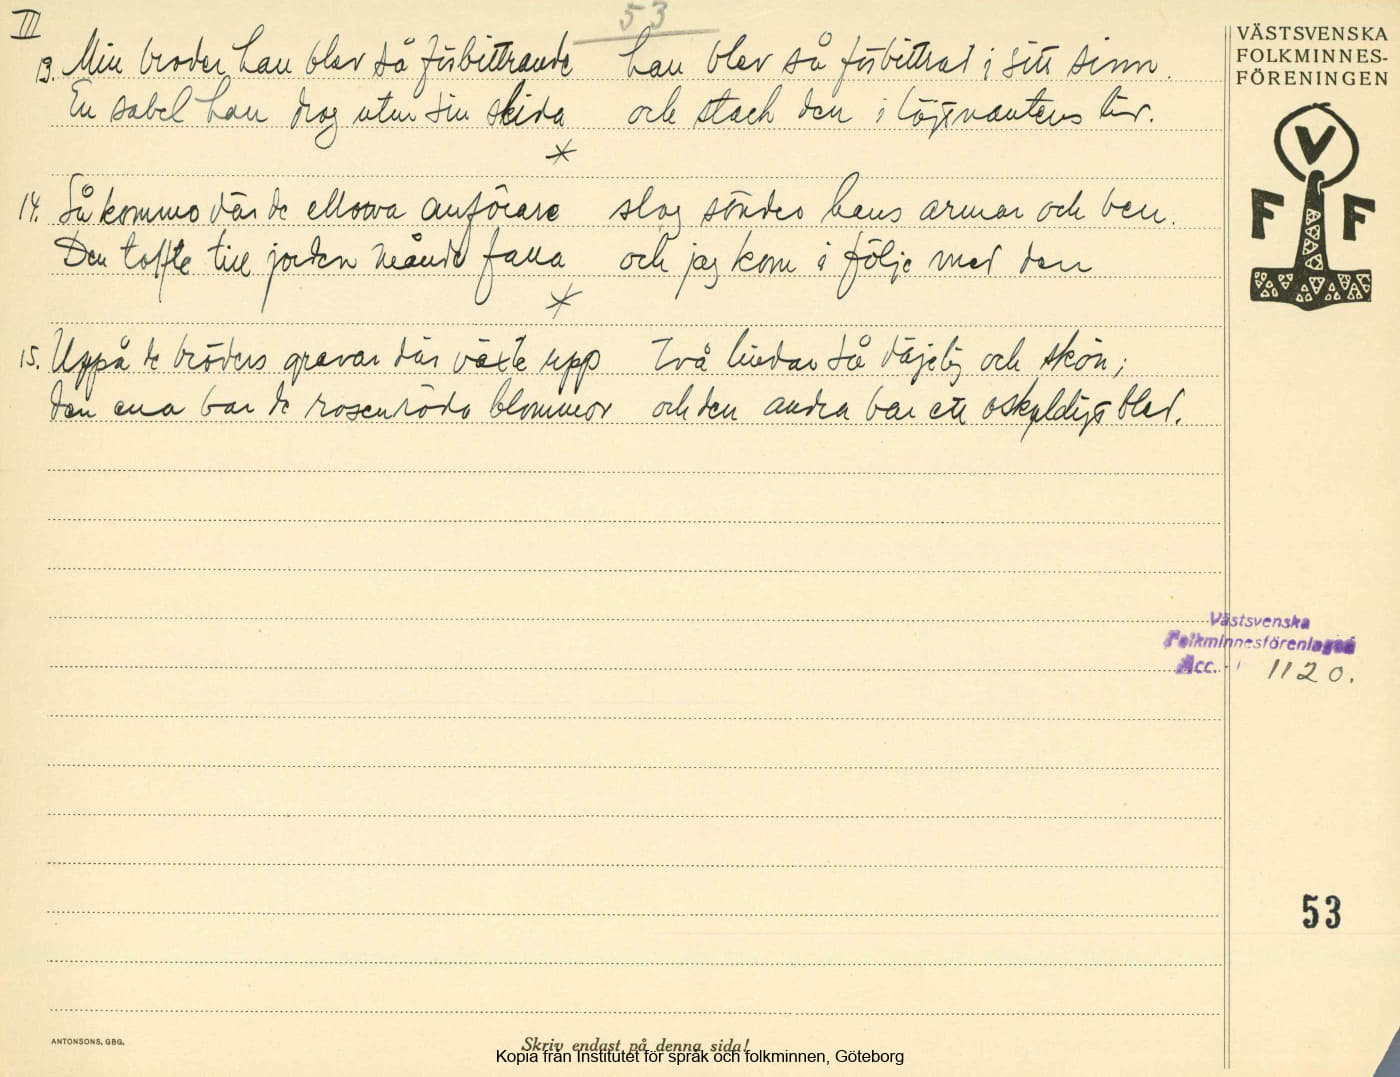 III
53
13. Min broder han blev så förbittrande han blev så förbittrad i sitt sinn.
En sabel han drog utur sin skida och stack den i löjtnantens liv.
*
14. Så kommo där de elleva anförare slog sönder hans armar och ben.
Den till jorden månde falla och jag kom i följe med den
*
15. Uppå de bröders gravar där växte upp två lindar så däjelig och skön;
den ena bar de rosenröda blommor och den andra bar ett oskyldigt blad.
VÄSTSVENSKA
FOLKMINNES-
FÖRENINGEN
V
F F
Västsvenska
Folkminnesföreningen
Acc. 1120.
53
ANTONSONS, GBG.
Skriv endast på denna sida!
Kopia från Institutet för språk och folkminnen, Göteborg